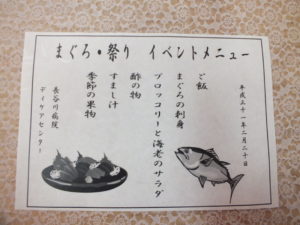 まぐろ・祭り イベントメニュー
平成三十一年二月二十日
ご飯
まぐろの刺身
ブロッコリーと海老のサラダ
酢の物
すまし汁
季節の果物
長谷川病院
デイケアセンター